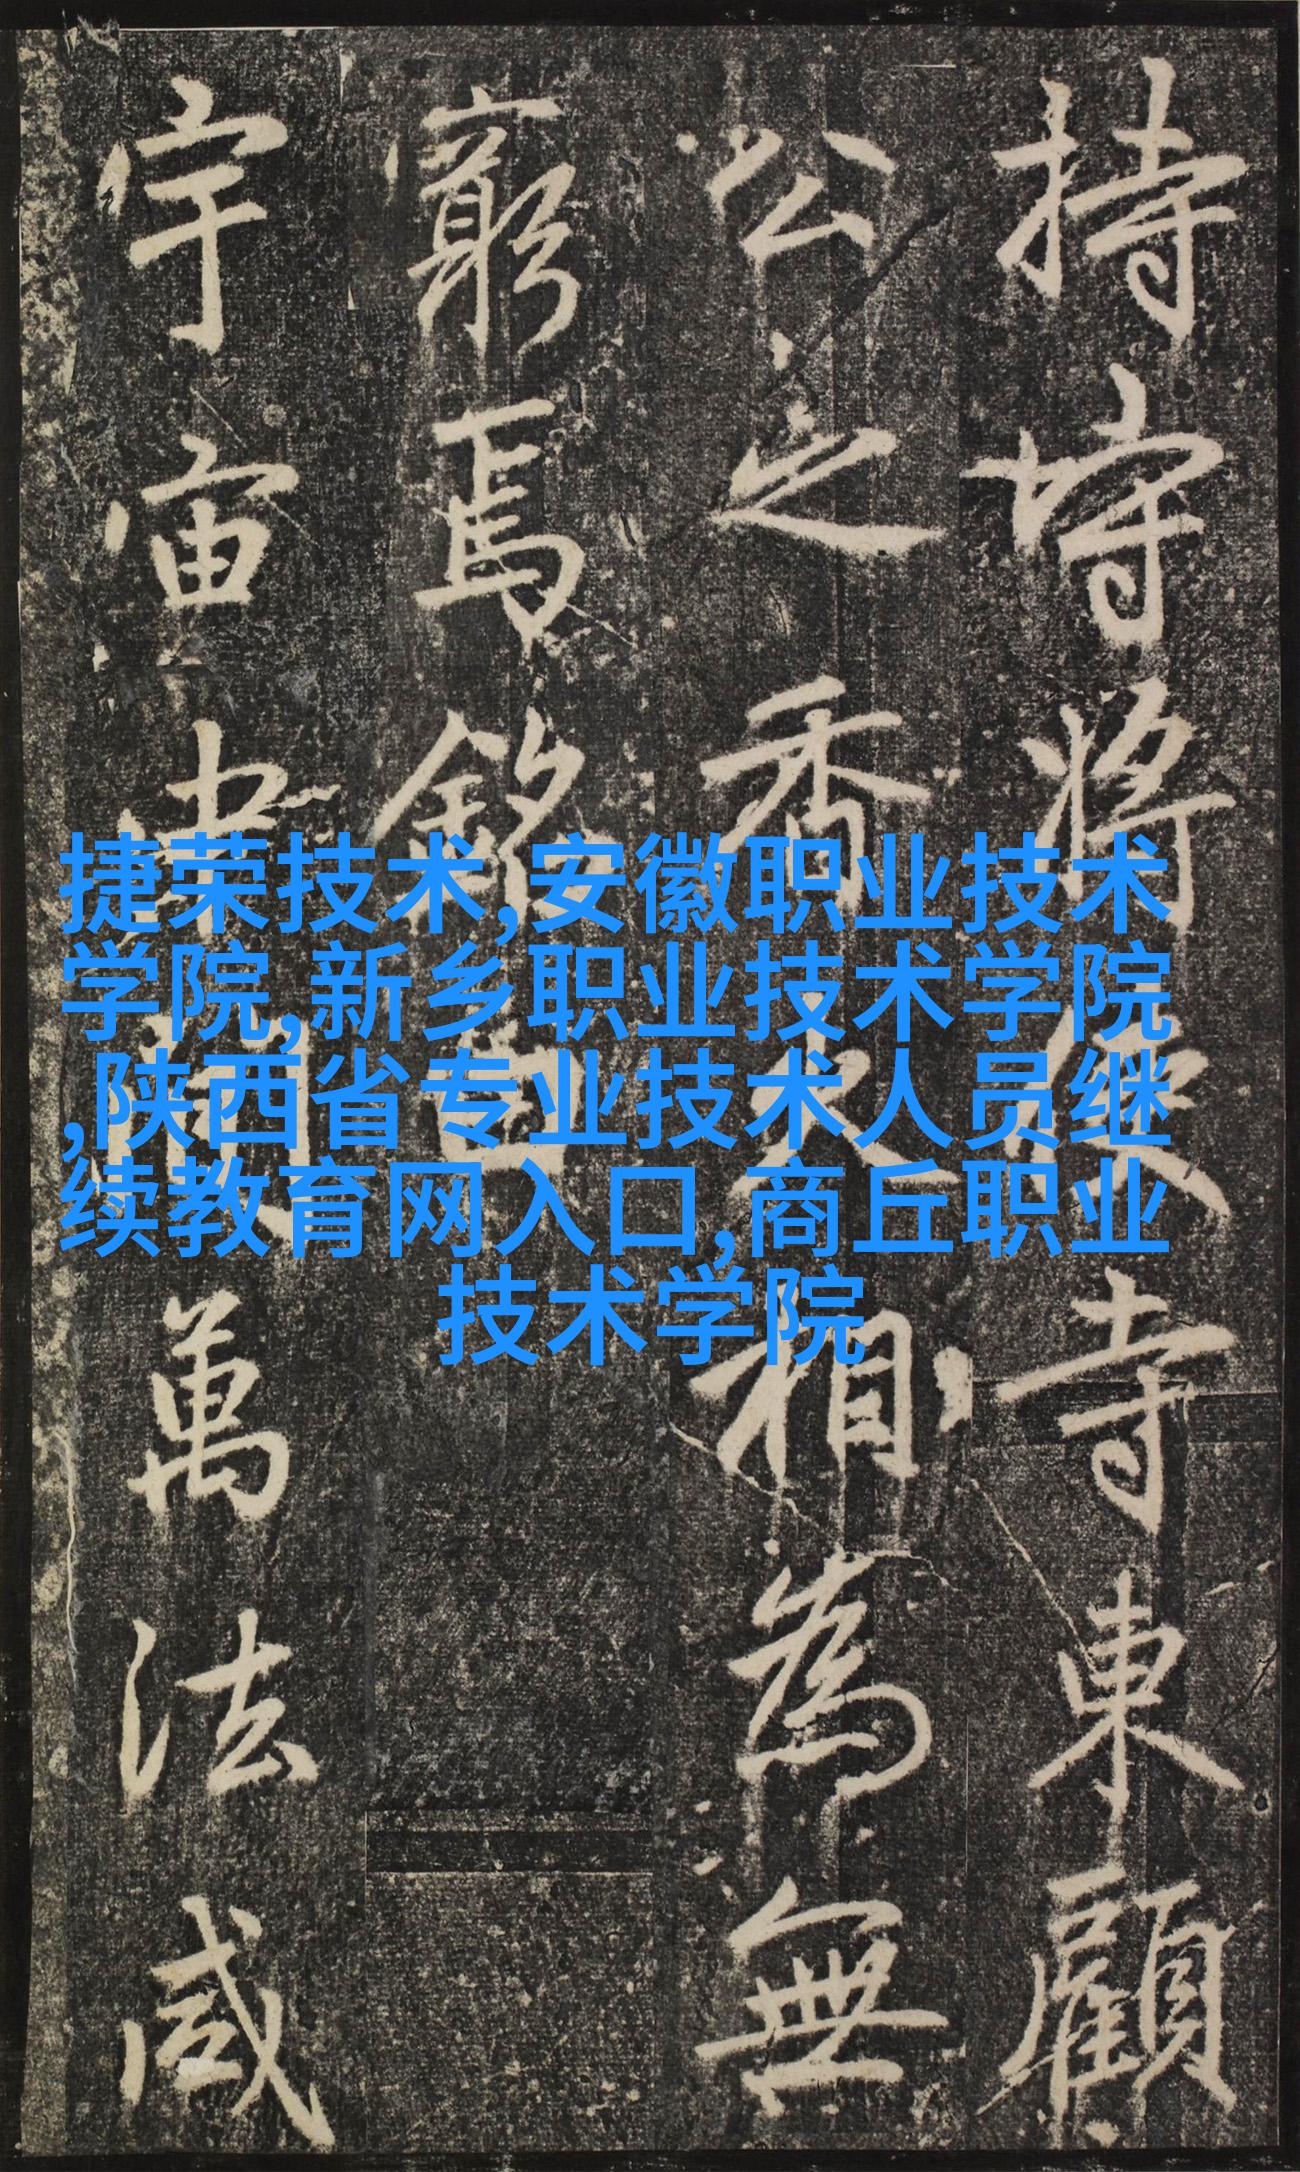 持將寺東顧
公之香相為無
窮焉銘曰
宇宙萬法咸
捷荣技术,安徽职业技术
学院,新乡职业技术学院
,陕西省专业技术人员继
续教育网入口,商丘职业
技术学院